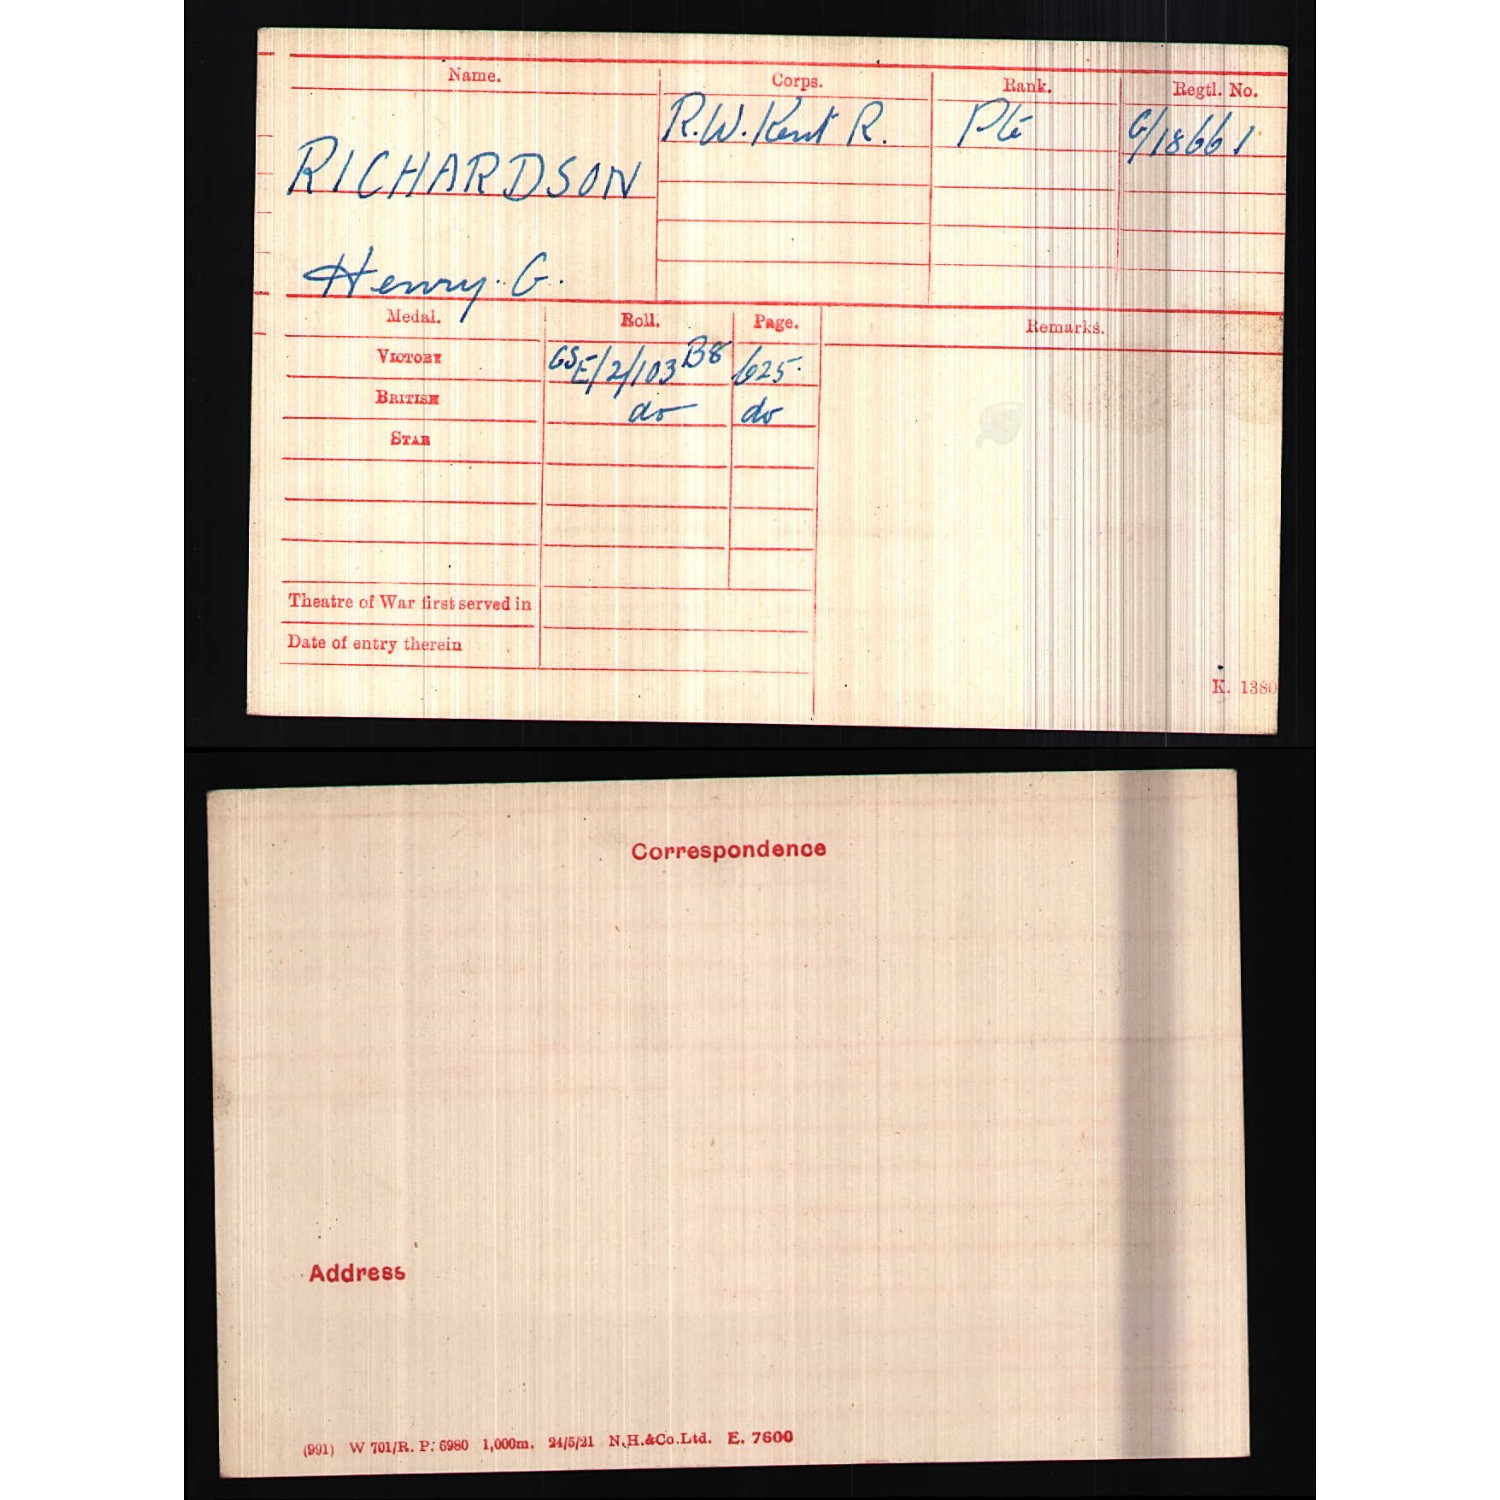 Name. Corps. Rank. Regtl. No.
R.W. Kent R. Pte G/18661
RICHARDSON
Henry. G.
Medal. Roll. Page. Remarks.
VICTORY GSE/2/103 B8 625.
BRITISH do do
STAR
Theatre of War first served in
Date of entry therein
K. 1380
Correspondence
Address
(991) W 701/R. P. 6980 1,000m. 24/5/21 N.H.&Co.Ltd. E. 7600